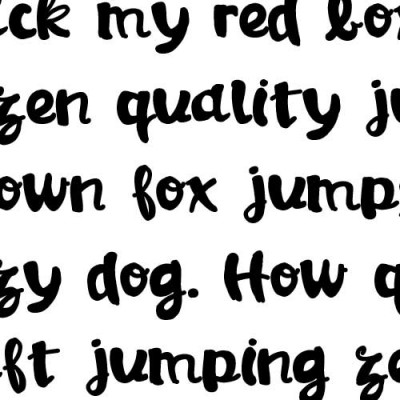 ick my red bo
zen quality ju
own fox jump
zy dog. How q
ft jumping ze